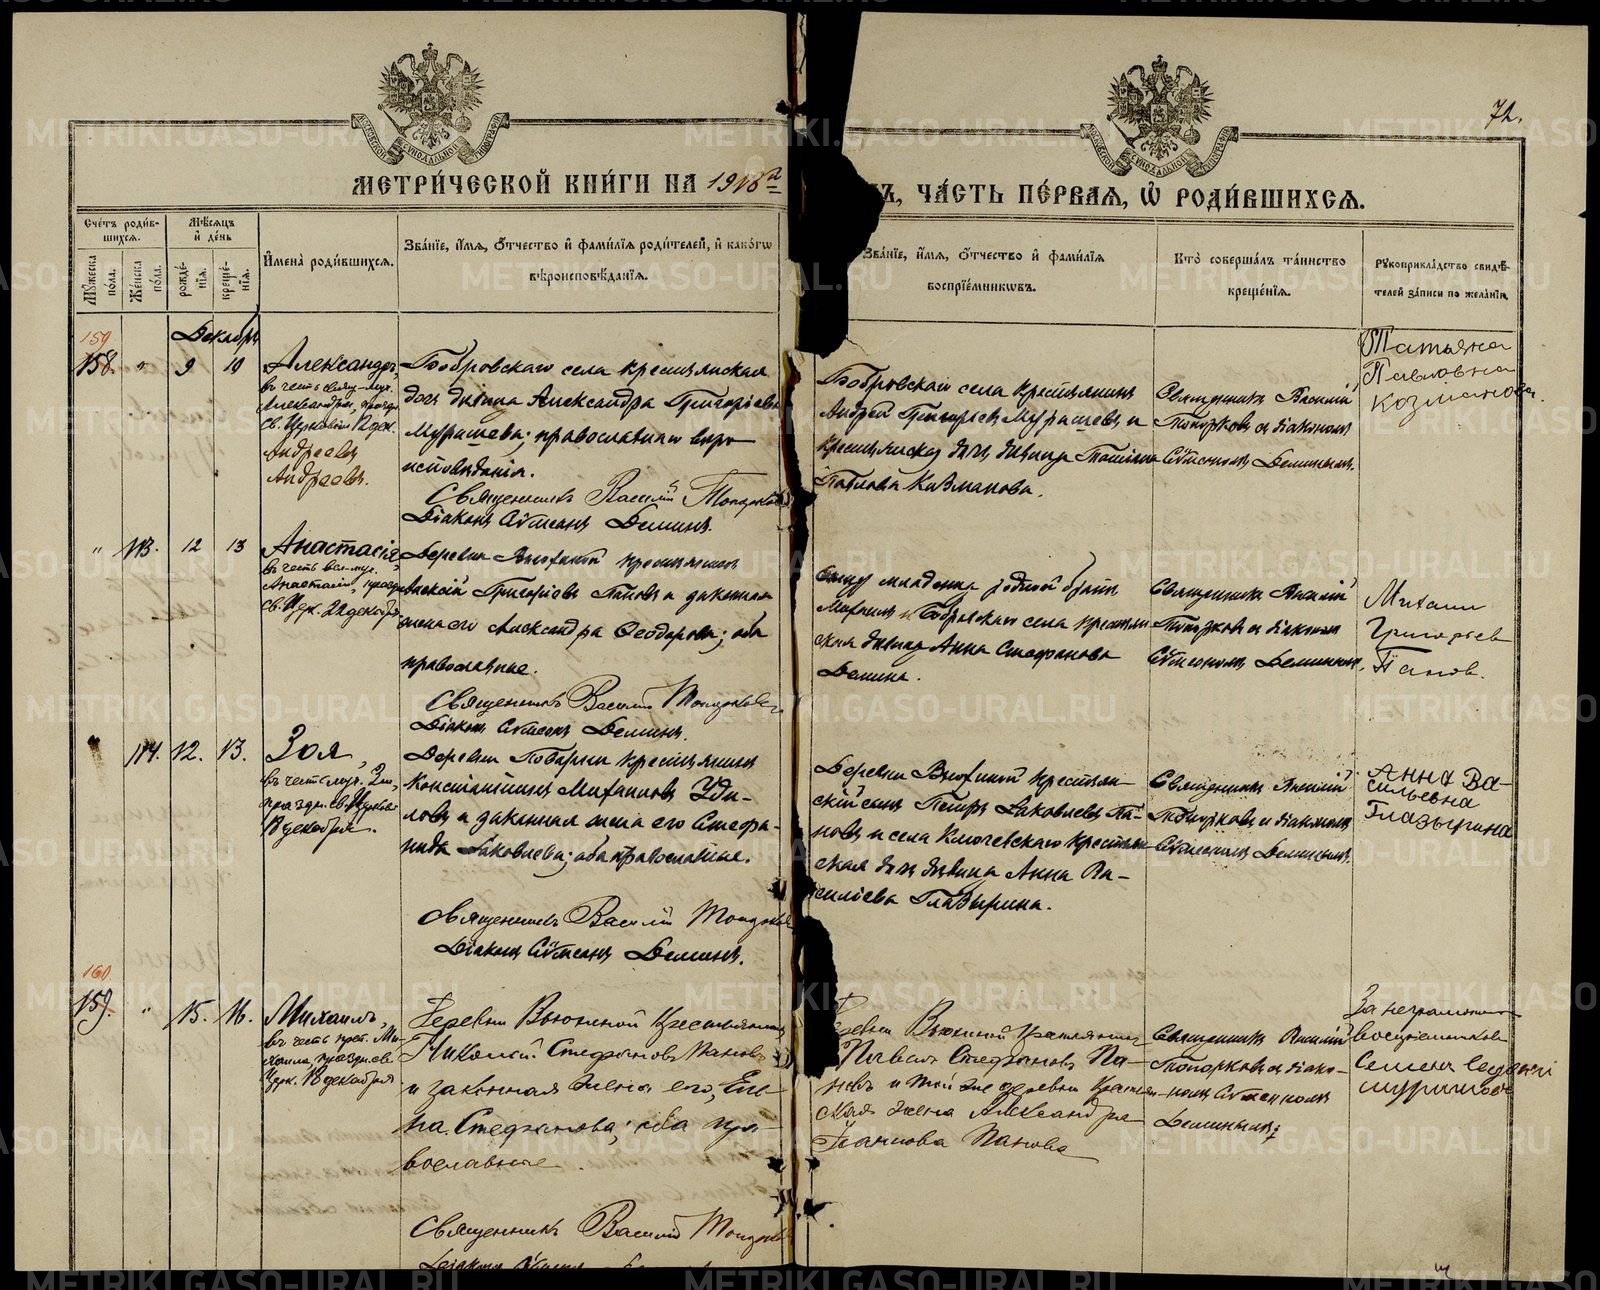 72.
МЕТРИ́ЧЕСКОЙ КНИ́ГИ НА 1918й
Ъ, ЧА́СТЬ ПЕ́РВАЯ, Ѡ҆ РОДИ́ВШИХСЯ.
Сче́тъ роди́в-
шихся.
Мѣ́сяцъ
и҆ де́нь
Мꙋ́жеска
по́ла.
Же́нска
по́ла.
рожде́-
нїѧ.
креще́-
нїѧ.
И҆мена̀ роди́вшихся.
Зва́нїе, и҆́мѧ, ѻ҆́тчество и҆ фами́лїѧ роди́телей, и҆ како́гѡ
вѣроисповѣ́данїѧ.
Зва́нїе, и҆́мѧ, ѻ҆́тчество и҆ фами́лїѧ
воспрїе́мникѡвъ.
Кто̀ соверша́лъ та́инство
креще́нїѧ.
Рꙋкоприкла́дство свидѣ́-
телей за́писи по жела́нїю
Декабрь
159
158. " 9 10
Александръ,
въ честь свящ-муч.
Александра, праздн.
св. Церковію 12 дек.
Андреевъ
Андреевъ.
Бобровскаго села крестьянская
дочь девица Александра Григорьева
Мурашева; православнаго веро-
исповеданія.
Священникъ Василій Топорковъ
Діаконъ Сѵмеонъ Деминъ.
Бобровскаго села крестьянинъ
Андрей Григорьевъ Мурашевъ и
крестьянская дочь девица Татіана
Павлова Казманова.
Священникъ Василій
Топорковъ съ діакономъ
Сѵмеономъ Деминымъ.
Татьяна
Павловна
Козманова.
" 113. 12 13
Анастасія,
въ честь вел-муч.
Анастасіи, праздн.
св. Церк. 22 декабря
Деревни Вьюхиной крестьянинъ
Алексій Григорьевъ Пановъ и законная
жена его Александра Ѳеодорова; оба
православные.
Священникъ Василій Топорковъ
Діаконъ Сѵмеонъ Деминъ.
младенца родной братъ
Михаилъ и Бобровскаго села крестьян-
ская девица Анна Стефанова
Демина.
Священникъ Василій
Топорковъ съ діакономъ
Сѵмеономъ Деминымъ.
Михаил
Григорьев
Панов.
" 114. 12. 13.
Зоя,
въ честь муч. Зои,
праздн. св. Церковію
18 декабря.
Деревни Поварни крестьянинъ
Константинъ Михаиловъ Уди-
ловъ и законная жена его Стефа-
нида Іаковлева; оба православные.
Священникъ Василій Топорковъ
Діаконъ Сѵмеонъ Деминъ.
Деревни Вьюхиной крестьян-
скій сынъ Петръ Іаковлевъ Па-
новъ и села Ключевскаго крестьян-
ская дочь девица Анна Ва-
силіева Глазырина.
Священникъ Василій
Топорковъ съ діакономъ
Сѵмеономъ Деминымъ.
Анна Ва-
сильевна
Глазырина
160
159. " 15. 16.
Михаилъ,
въ честь преп. Ми-
хаила, праздн. св.
Церк. 18 декабря
Деревни Вьюхиной крестьянинъ
Николай Стефановъ Пановъ
и законная жена его, Еле-
на Стефанова; оба пра-
вославные.
Священникъ Василій Топорковъ
Діаконъ
Деревни Вьюхиной крестьянинъ
Павелъ Стефановъ Па-
новъ и той же деревни крестьян-
ская жена Александра
Панова
Священникъ Василій
Топорковъ съ діако-
номъ Сѵмеономъ
Деминымъ
За неграмотн.
воспріемниковъ
Семенъ
METRIKI.GASO-URAL.RU